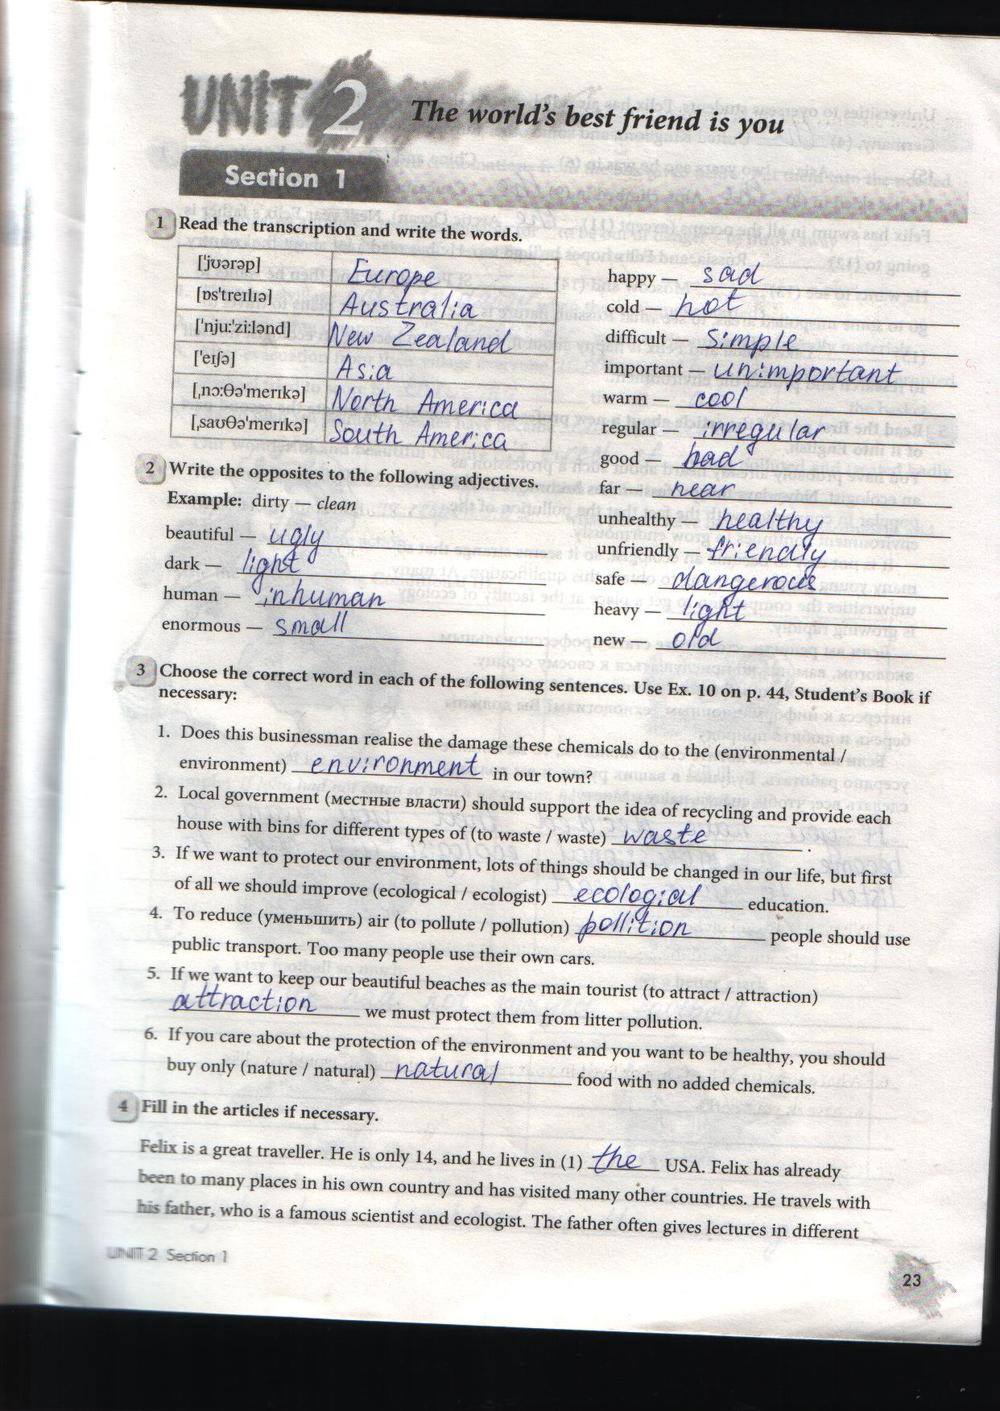 UNIT 2 The world's best friend is you
Section 1
1 Read the transcription and write the words.
['jʊərəp] Europe
[ɒs'treɪlɪə] Australia
['nju:'zi:lənd] New Zealand
['eɪʃə] Asia
[,nɔ:θə'merɪkə] North America
[,saʊθə'merɪkə] South America
2 Write the opposites to the following adjectives.
Example: dirty — clean
beautiful — ugly
dark — light
human — inhuman
enormous — small
happy — sad
cold — hot
difficult — simple
important — unimportant
warm — cool
regular — irregular
good — bad
far — near
unhealthy — healthy
unfriendly — friendly
safe — dangerous
heavy — light
new — old
3 Choose the correct word in each of the following sentences. Use Ex. 10 on p. 44, Student's Book if
necessary:
1. Does this businessman realise the damage these chemicals do to the (environmental /
environment) environment in our town?
2. Local government (местные власти) should support the idea of recycling and provide each
house with bins for different types of (to waste / waste) waste .
3. If we want to protect our environment, lots of things should be changed in our life, but first
of all we should improve (ecological / ecologist) ecological education.
4. To reduce (уменьшить) air (to pollute / pollution) pollition people should use
public transport. Too many people use their own cars.
5. If we want to keep our beautiful beaches as the main tourist (to attract / attraction)
attraction we must protect them from litter pollution.
6. If you care about the protection of the environment and you want to be healthy, you should
buy only (nature / natural) natural food with no added chemicals.
4 Fill in the articles if necessary.
Felix is a great traveller. He is only 14, and he lives in (1) the USA. Felix has already
been to many places in his own country and has visited many other countries. He travels with
his father, who is a famous scientist and ecologist. The father often gives lectures in different
UNIT 2 Section 1
23